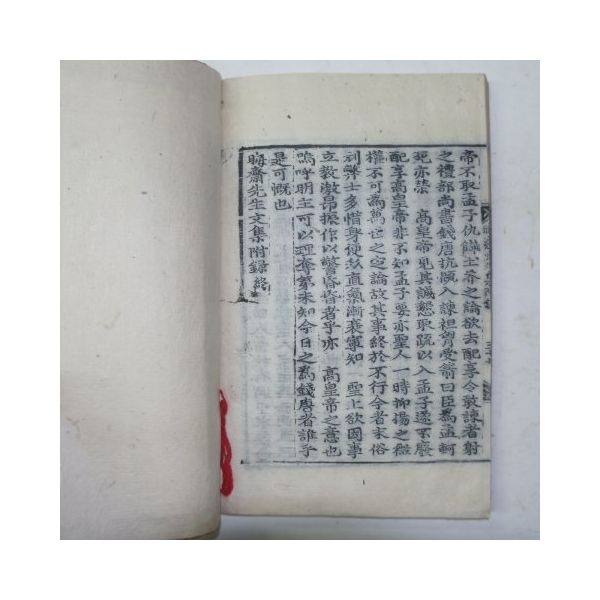 帝不取孟子仇讎土芥之論欲去配享令敢諫者射
之禮部尚書錢唐抗疏入諫袒胷受箭曰臣爲孟軻
死亦榮 高皇帝見其誠懇取疏以入孟子遂不廢
配享高皇帝非不知孟子要亦聖人一時抑揚之
權不可爲萬世之定論故其事終於不行今者末俗
利弊士多惜身便私直氣漸衰寧知 聖上欲因事
立教激昂振作以警昏惰者乎亦 高皇帝之意也
嗚呼明主可以理奪第未知今日之爲錢唐者誰乎
是可慨也
晦齋先生文集附錄 終